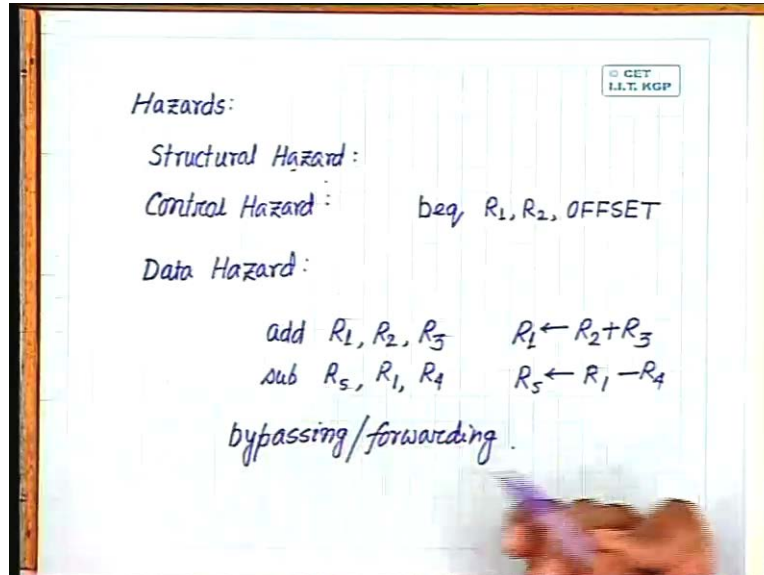 © CET
I.I.T. KGP
Hazards:
Structural Hazard:
Control Hazard: beq R1, R2, OFFSET
Data Hazard:
add R1, R2, R3 R1 ← R2+R3
sub R5, R1, R4 R5 ← R1 – R4
bypassing/forwarding.